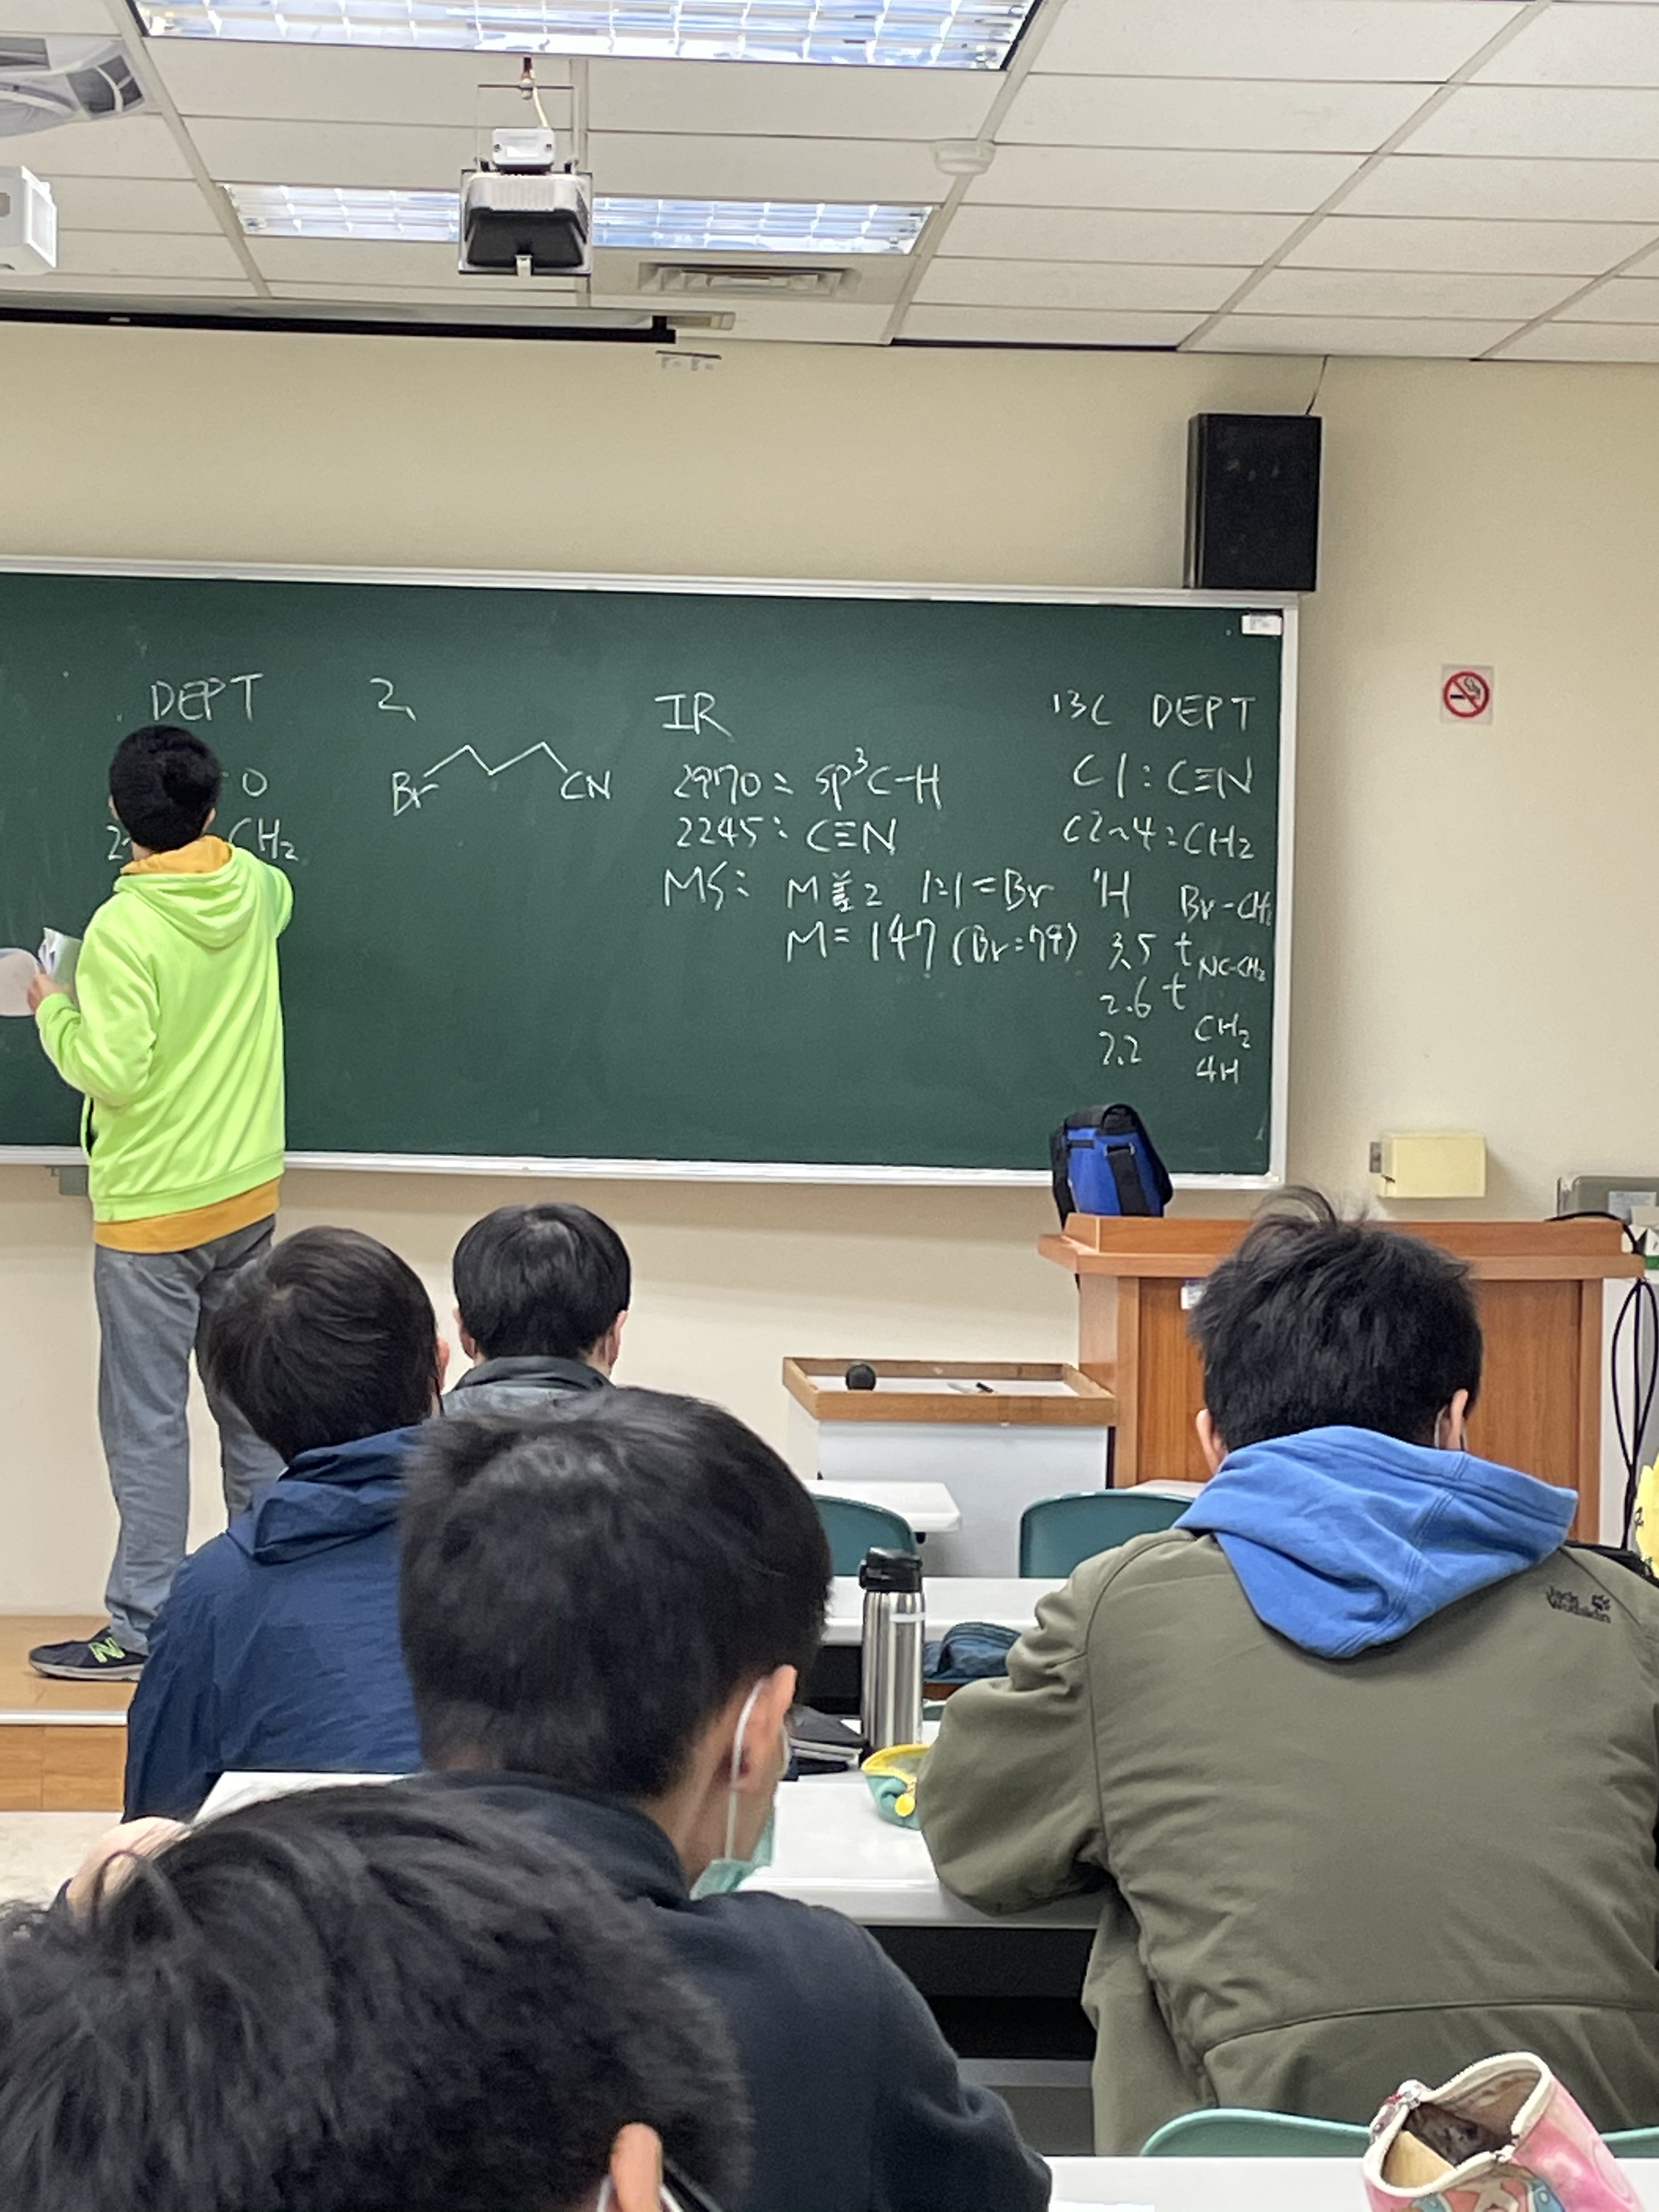 DEPT
O
CH₂
2、
Br
CN
IR
2970: sp³C-H
2245: C≡N
MS: M差2 1:1=Br
M=147 (Br=79)
13C DEPT
C1: C≡N
C2~4: CH₂
'H Br-CH₂
3.5 t NC-CH₂
2.6 t
2.2 CH₂
4H
Jack
Wolfskin
N